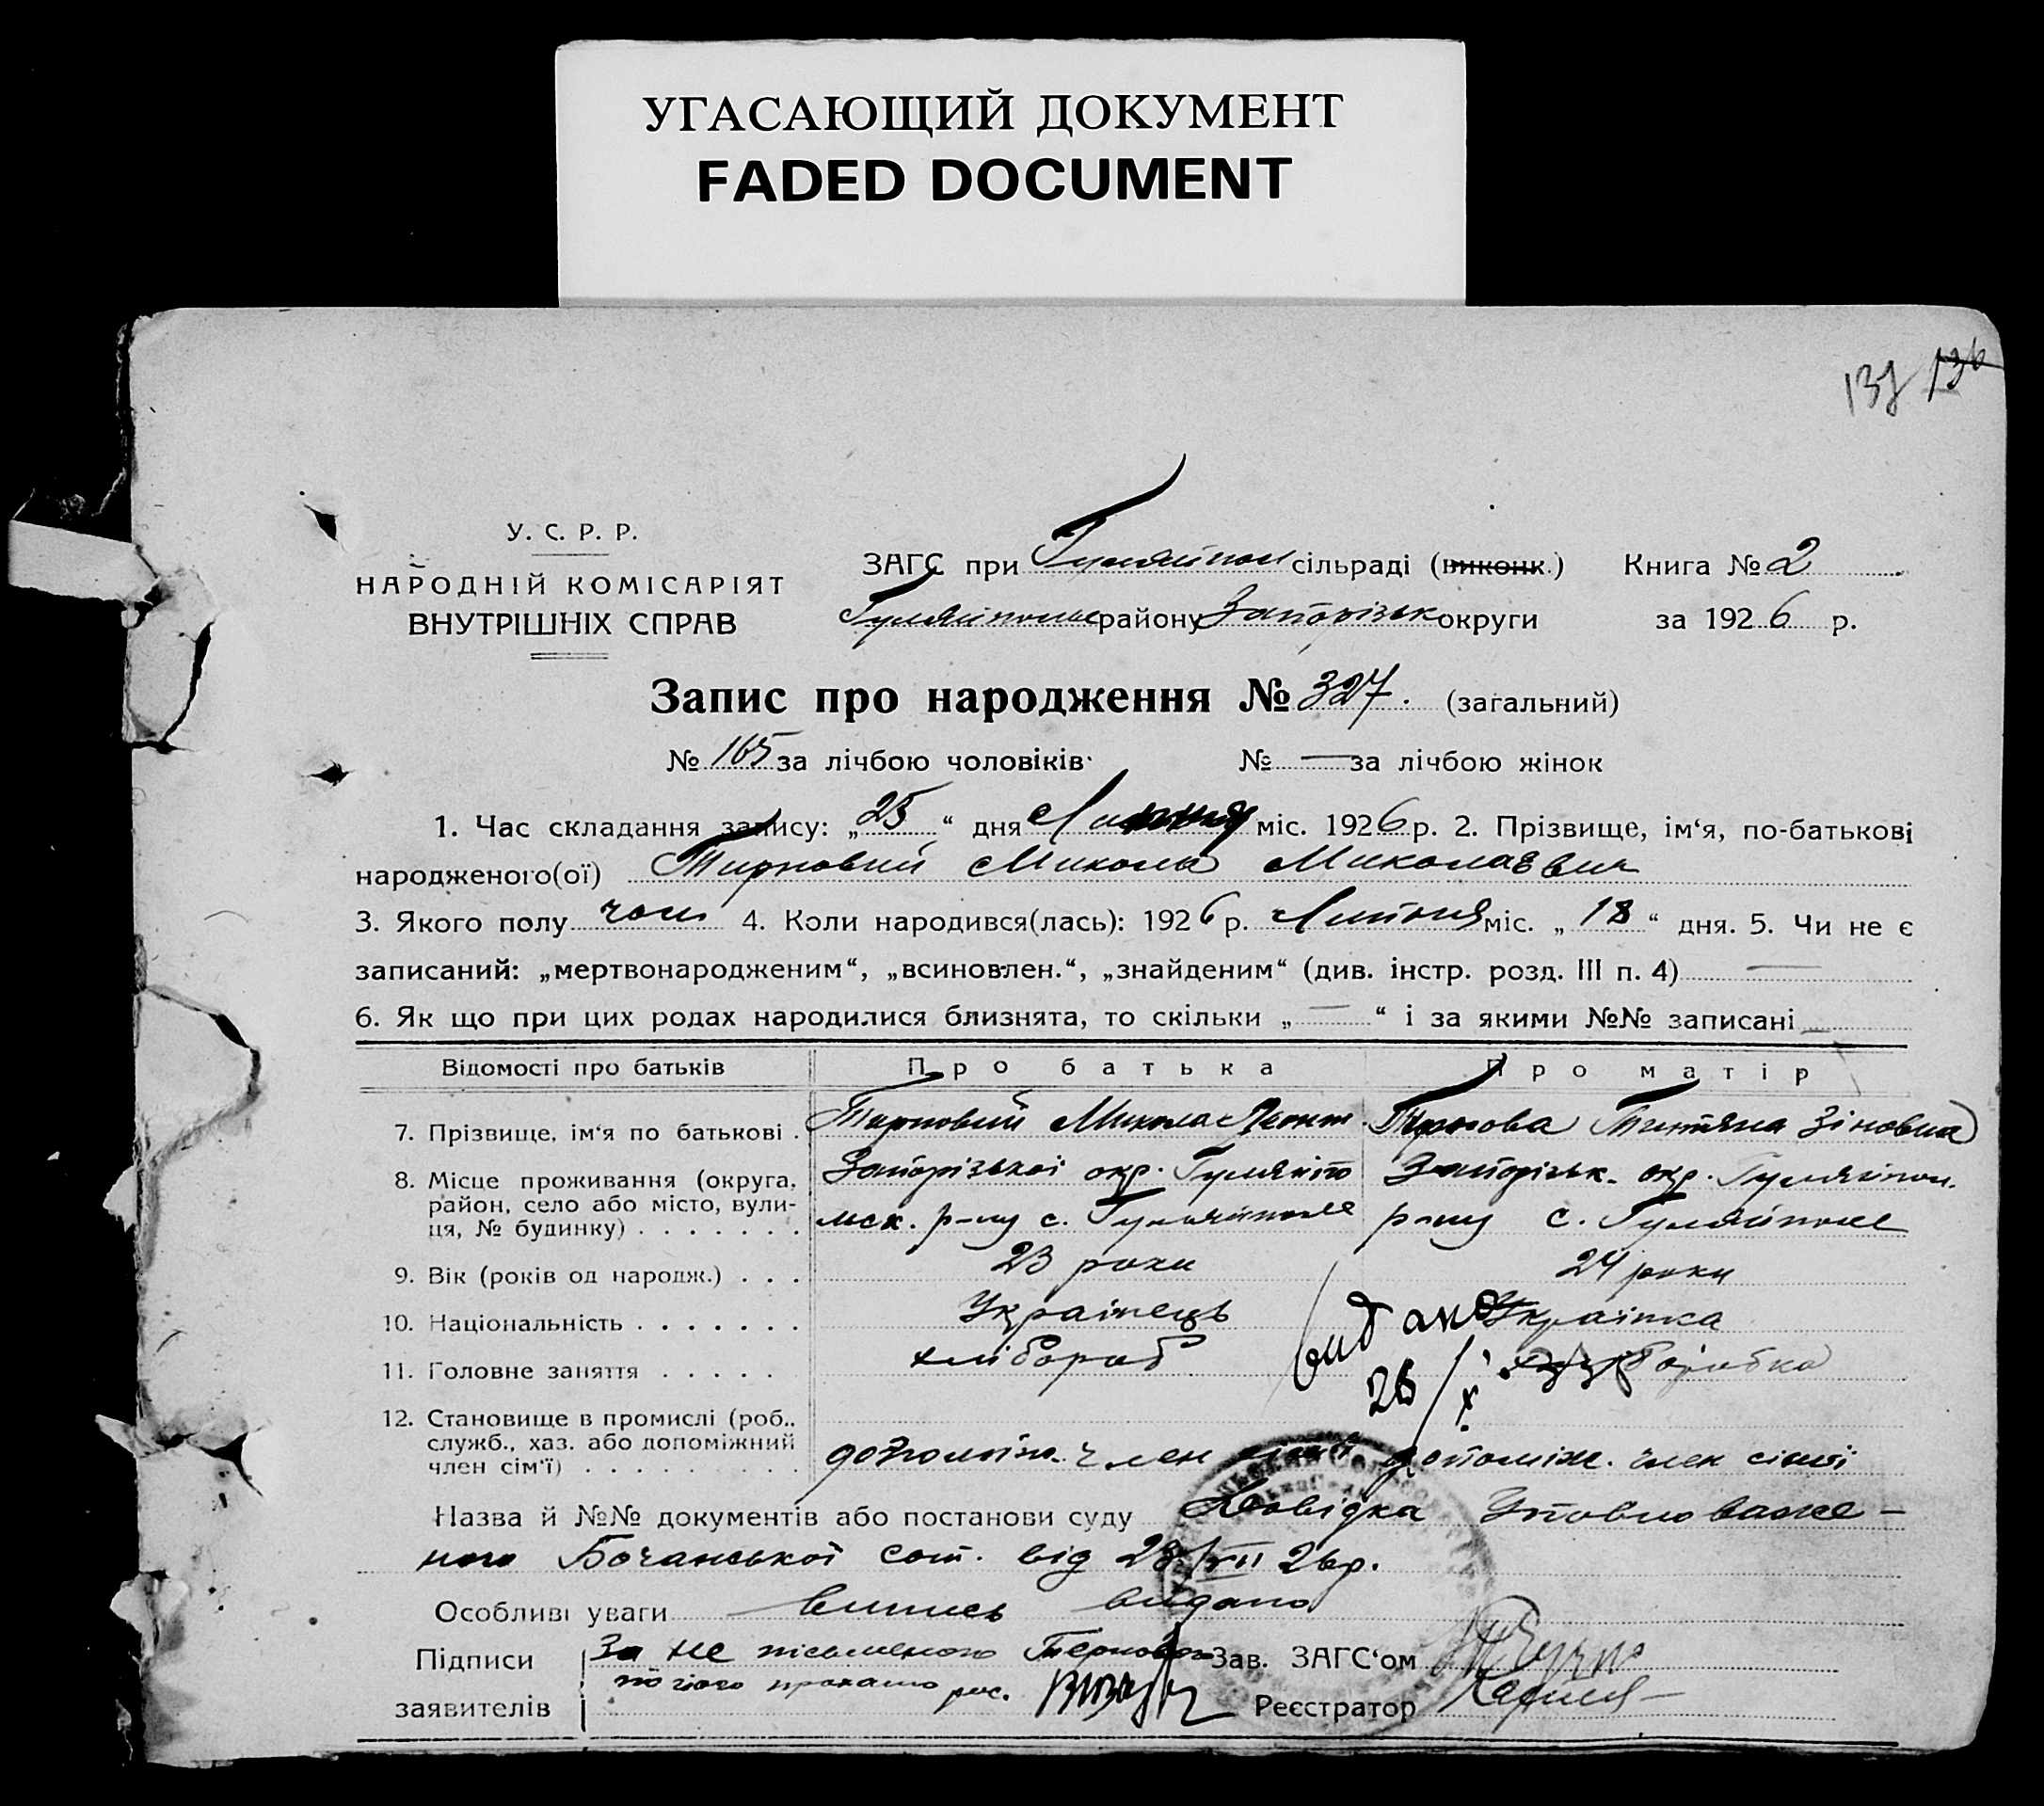 УГАСАЮЩИЙ ДОКУМЕНТ
FADED DOCUMENT
137 136
У. С. Р. Р.
НАРОДНІЙ КОМІСАРІЯТ
ВНУТРІШНІХ СПРАВ
ЗАГС при Гуляйпол сільраді (виконк.) Книга № 2
Гуляйпольс району Запорізьк округи за 1926 р.
Запис про народження № 327. (загальний)
№ 165 за лічбою чоловіків № — за лічбою жінок
1. Час складання запису: „25“ дня Липня міс. 1926 р. 2. Прізвище, ім‘я, по-батькові
народженого(ої) Тирновий Микола Миколаєвич
3. Якого полу чол. 4. Коли народився(лась): 1926 р. Липня міс. „18“ дня. 5. Чи не є
записаний: „мертвонародженим“, „всиновлен.“, „знайденим“ (див. інстр. розд. III п. 4) —
6. Як що при цих родах народилися близнята, то скільки „—“ і за якими №№ записані —
Відомості про батьків Про батька Про матір
7. Прізвище, ім‘я по батькові . Тирновий Микола Леонт. Тирнова Титяна Зіновна
8. Місце проживання (округа, район, село або місто, вулиця, № будинку) . . . . . . . Запорізької окр. Гуляйпо Запорізьк. окр. Гуляйпол.
льск. р-ну с. Гуляйполе р-ну с. Гуляйполе
9. Вік (років од народж.) . . . 23 роки 24 роки
10. Національність . . . . . . . Українець Українка
видано
11. Головне заняття . . . . . хлібороб хліборобка
28/X
12. Становище в промислі (роб., служб., хаз. або допоміжний член сім‘ї) . . . . . . . . . допоміж. член сімї допоміж. член сімї
Назва й №№ документів або постанови суду Довідка Уповноваже-
ного Бочанської сот. від 23/VII 26р.
Особливі уваги випись видано
Підписи За не письменого Тернового Зав. ЗАГС‘ом
по його проханню рос.
заявителів Реєстратор